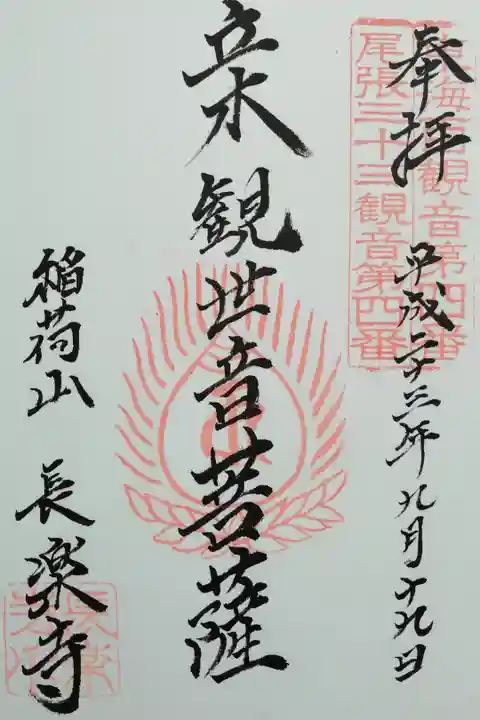 奉拝
平成二十三年九月十九日
尾張三十三観音第四番
観音第四番
立木観世音菩薩
稲荷山 長楽寺